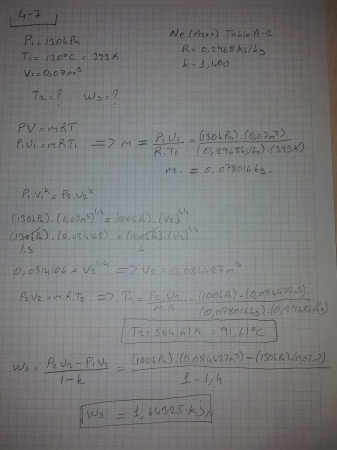 4-7
P1=130kPa
T1=120°C=393K
V1=0,07m³
T2=? W3=?
N2 (Azot) Tablo A-2
R=0,2968 kJ/kg
k=1,400
PV=mRT
P1V1=mRT1 => m = P1V1 / R.T1 = (130kPa).(0,07m³) / (0,2968kJ/kg).(393K)
m = 0,078016kg
P1.V1^k = P2.V2^k
(130kPa).(0,07m³)^1,4 = (100kPa).(V2)^1,4
(130kPa).(0,024168) = (100kPa).(V2)^1,4
1,3 1
0,0314106 = V2^1,4 => V2 = 0,084427m³
P2V2 = m.R.T2 => T2 = P2.V2 / m.R = (100kPa).(0,084427m³) / (0,078016kg).(0,2968kJ/kg)
T2=364,61K = 91,61°C
W3 = P2V2 - P1V1 / 1-k = (100kPa).(0,084427m³) - (130kPa).(0,07m³) / 1-1,4
W3 = 1,64325 kJ